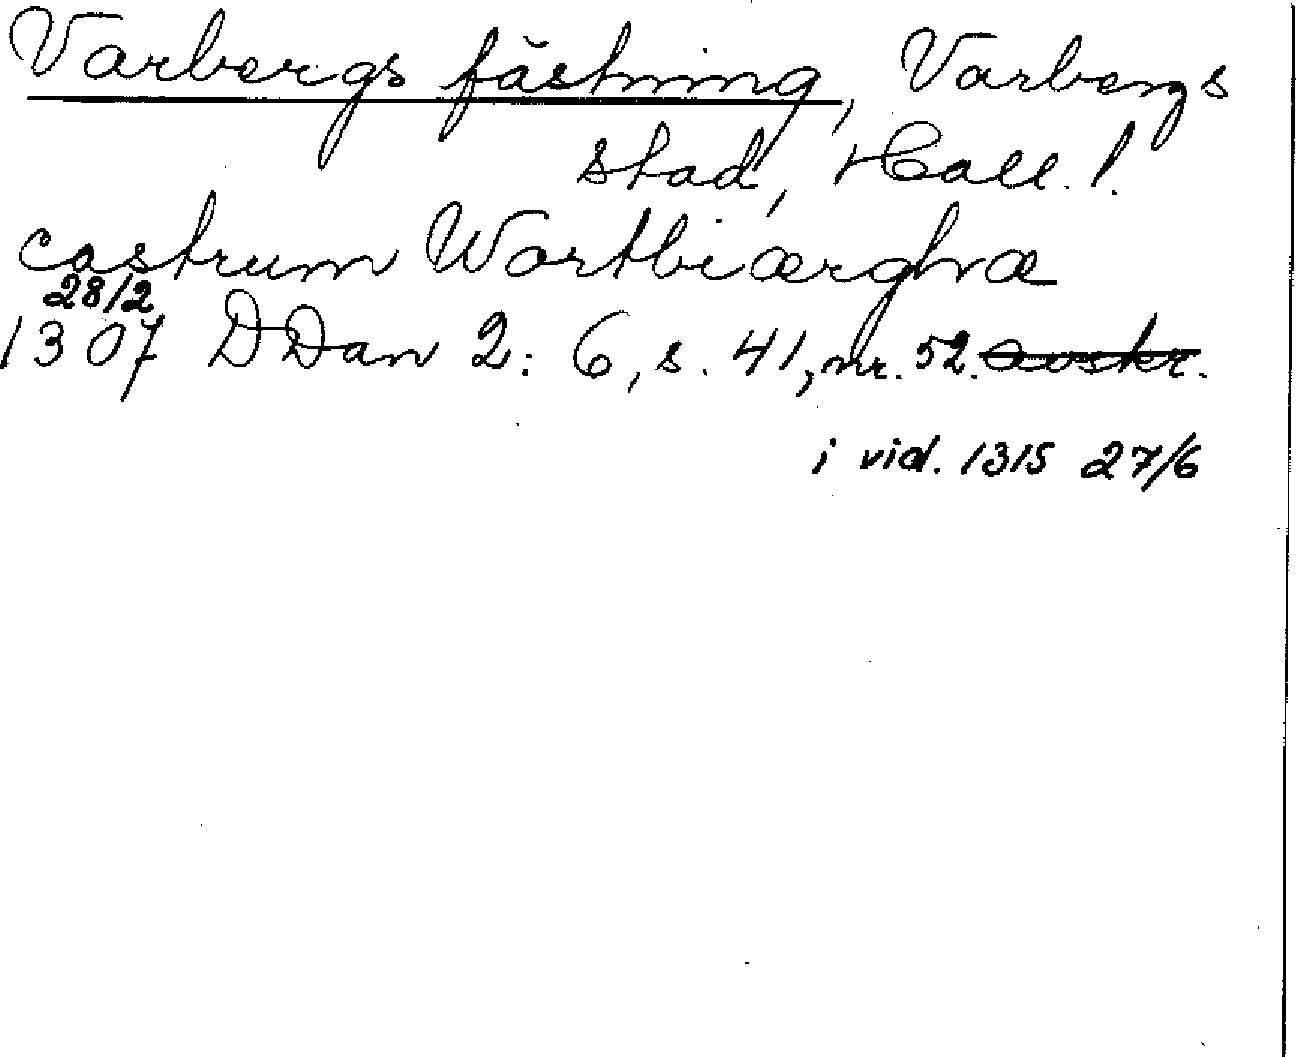 Varbergs fästning, Varbergs
stad, Hall. l.
castrum Wartbiærghæ
28/2
1307 DDan 2: 6, s. 41, nr. 52. avskr.
i vid. 1315 27/6